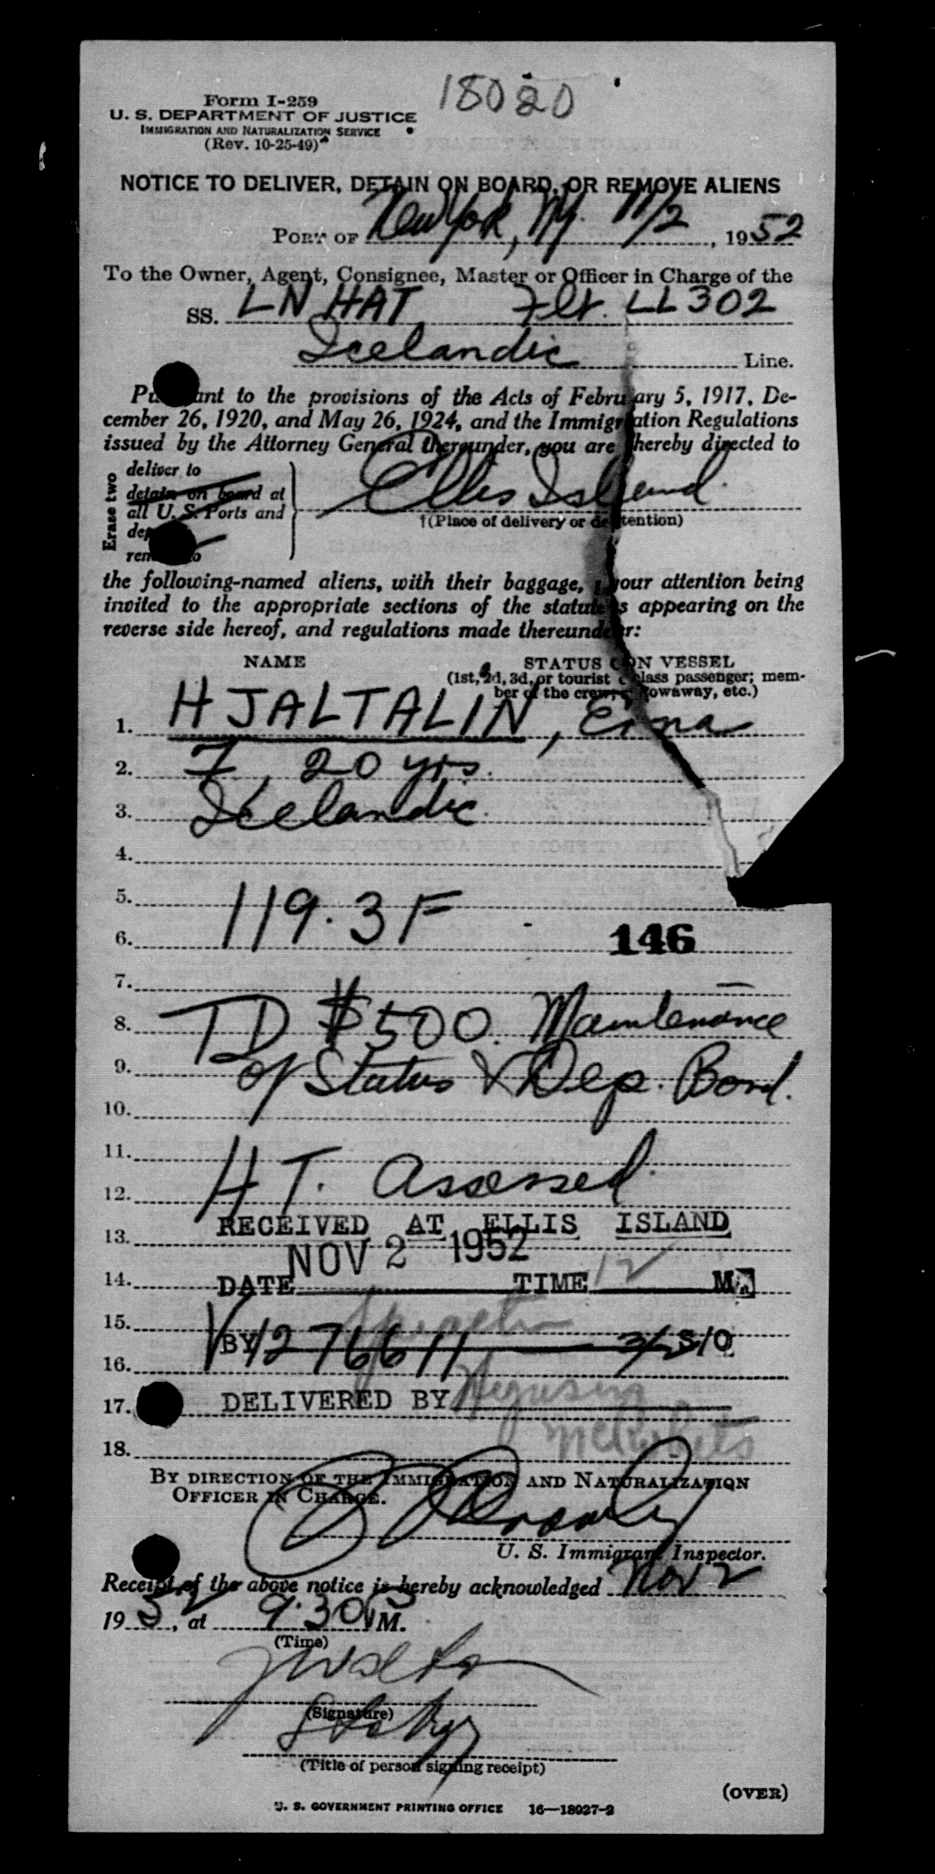 18020
Form I-259
U. S. DEPARTMENT OF JUSTICE
IMMIGRATION AND NATURALIZATION SERVICE
(Rev. 10-25-49)
NOTICE TO DELIVER, DETAIN ON BOARD, OR REMOVE ALIENS
PORT OF New York, NY. 11/2, 1952
To the Owner, Agent, Consignee, Master or Officer in Charge of the
SS. LN HAT Flt. LL302
Icelandic Line.
Pursuant to the provisions of the Acts of February 5, 1917, De-
cember 26, 1920, and May 26, 1924, and the Immigration Regulations
issued by the Attorney General thereunder, you are hereby directed to
Erase two
deliver to
detain on board at
all U. S. Ports and
remove to
Ellis Island.
†(Place of delivery or detention)
the following-named aliens, with their baggage, your attention being
invited to the appropriate sections of the statutes appearing on the
reverse side hereof, and regulations made thereunder:
NAME STATUS ON VESSEL
(1st, 2d, 3d, or tourist class passenger; mem-
ber of the crew, stowaway, etc.)
1. HJALTALIN, Erna
2. F, 20 yrs.
3. Icelandic.
4.
5.
119.3F
6. 146
7.
8. TD $500. Maintenance
9. of Status & Dep. Bond.
10.
11.
12. HT. Assessed.
RECEIVED AT ELLIS ISLAND
13. NOV 2 1952
14. DATE TIME 12 M
15.
BY V1276611 S/O
16.
17. DELIVERED BY
18.
BY DIRECTION OF THE IMMIGRATION AND NATURALIZATION
OFFICER IN CHARGE.
U. S. Immigrant Inspector.
Receipt of the above notice is hereby acknowledged Nov 2
1952, at 9:30 M.
(Time)
(Signature)
(Title of person signing receipt)
(OVER)
U. S. GOVERNMENT PRINTING OFFICE 16—18027-2